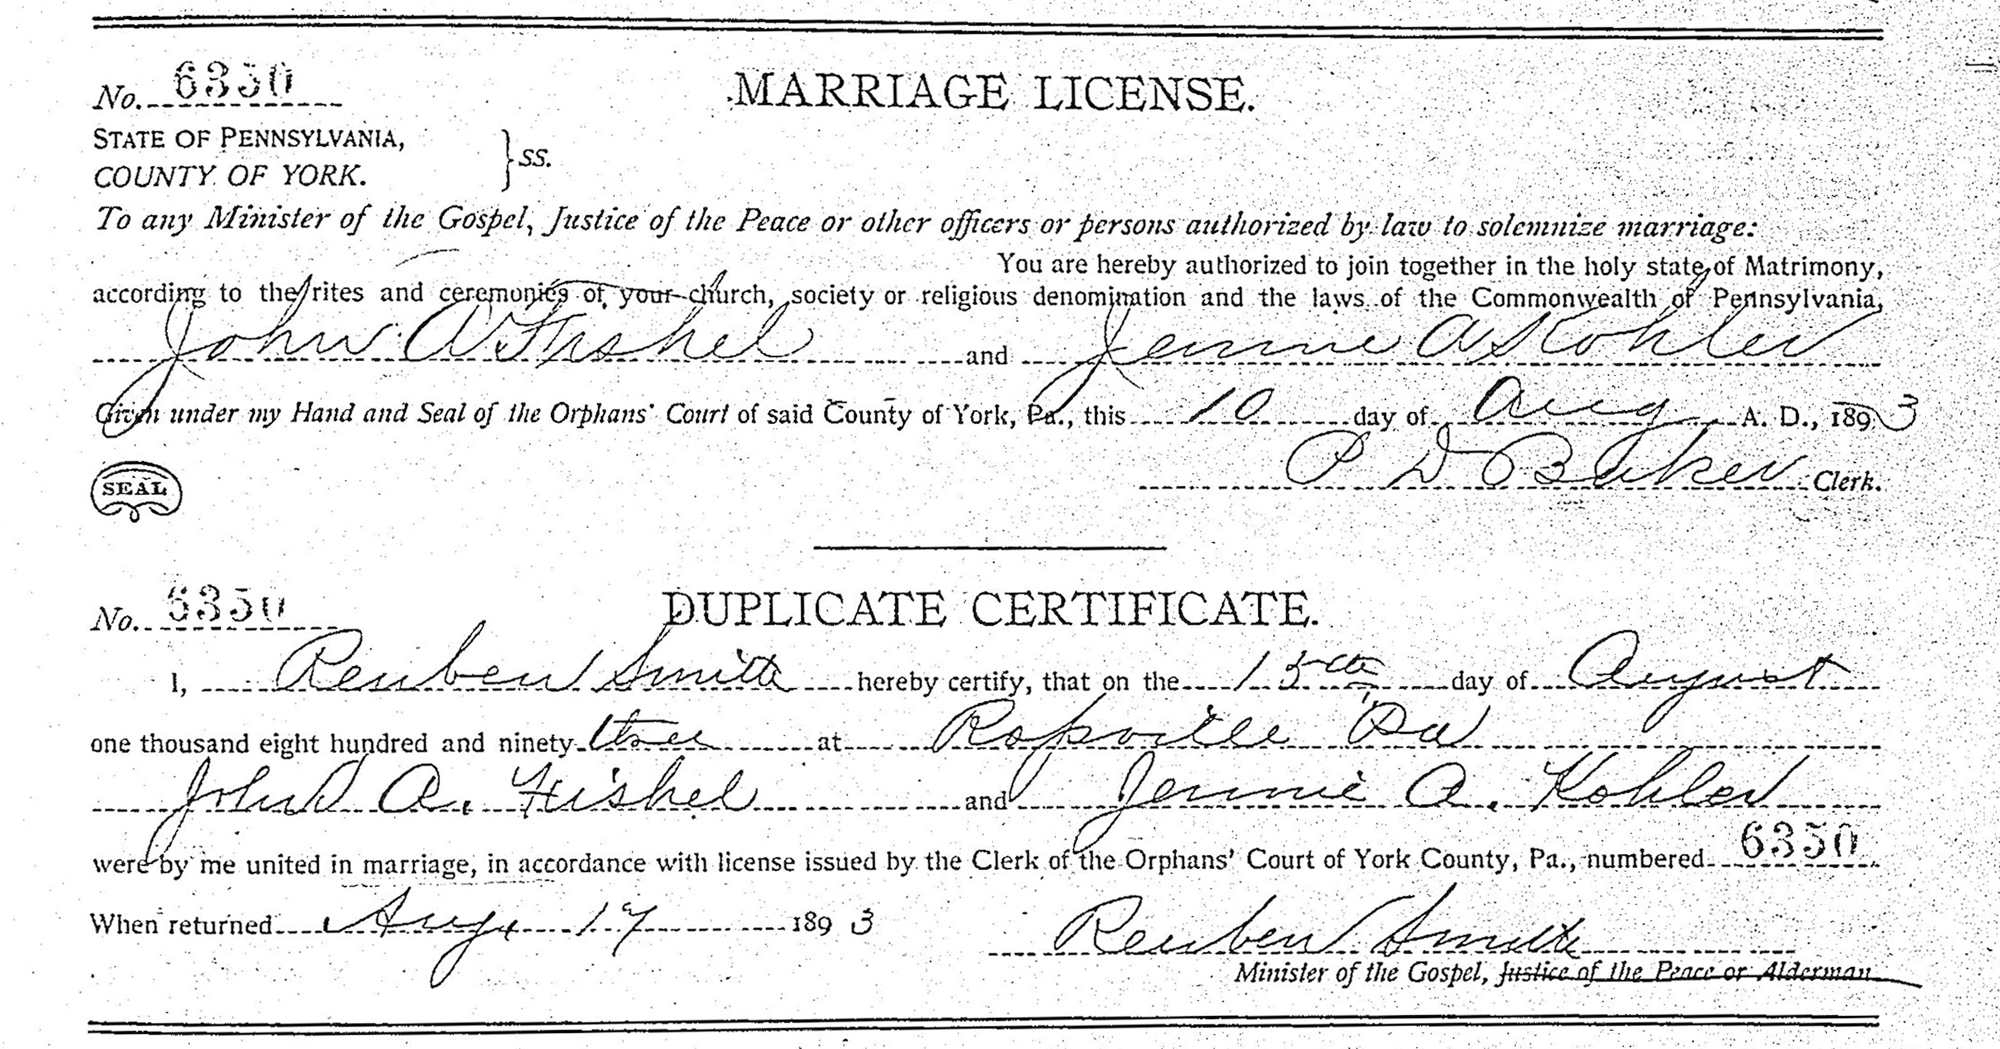 No. 6350
MARRIAGE LICENSE.
STATE OF PENNSYLVANIA,
COUNTY OF YORK.
} SS.
To any Minister of the Gospel, Justice of the Peace or other officers or persons authorized by law to solemnize marriage:
You are hereby authorized to join together in the holy state of Matrimony,
according to the rites and ceremonies of your church, society or religious denomination and the laws of the Commonwealth of Pennsylvania,
John A Fishel and Jennie A Kohler
Given under my Hand and Seal of the Orphans' Court of said County of York, Pa., this 10 day of Aug A. D., 1893
P D Baker Clerk.
SEAL
No. 6350
DUPLICATE CERTIFICATE.
I, Reuben Smith hereby certify, that on the 15th day of August
one thousand eight hundred and ninety three at Pa
John A. Fishel and Jennie A. Kohler
were by me united in marriage, in accordance with license issued by the Clerk of the Orphans' Court of York County, Pa., numbered 6350
When returned Aug. 17 1893
Reuben Smith
Minister of the Gospel, Justice of the Peace or Alderman